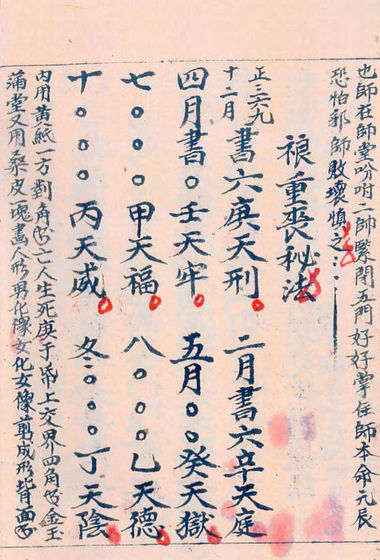 也師在師堂吩咐二師緊閉五門好好掌住師本命元辰
恐怕邪師敗壞慎之
禳重喪秘法
正三六九十二月書六庚天刑 二月書六辛天庭
四月書○壬天牢 五月○○癸天獄
七○○○甲天福 八○○○乙天德
十○○○丙天威 冬○○○丁天陰
內用黃紙一方對角書亡人生死庚于帋上交界四角書金玉
滿堂又用桑皮一塊畫人形男化像女化女像剪成形背面書